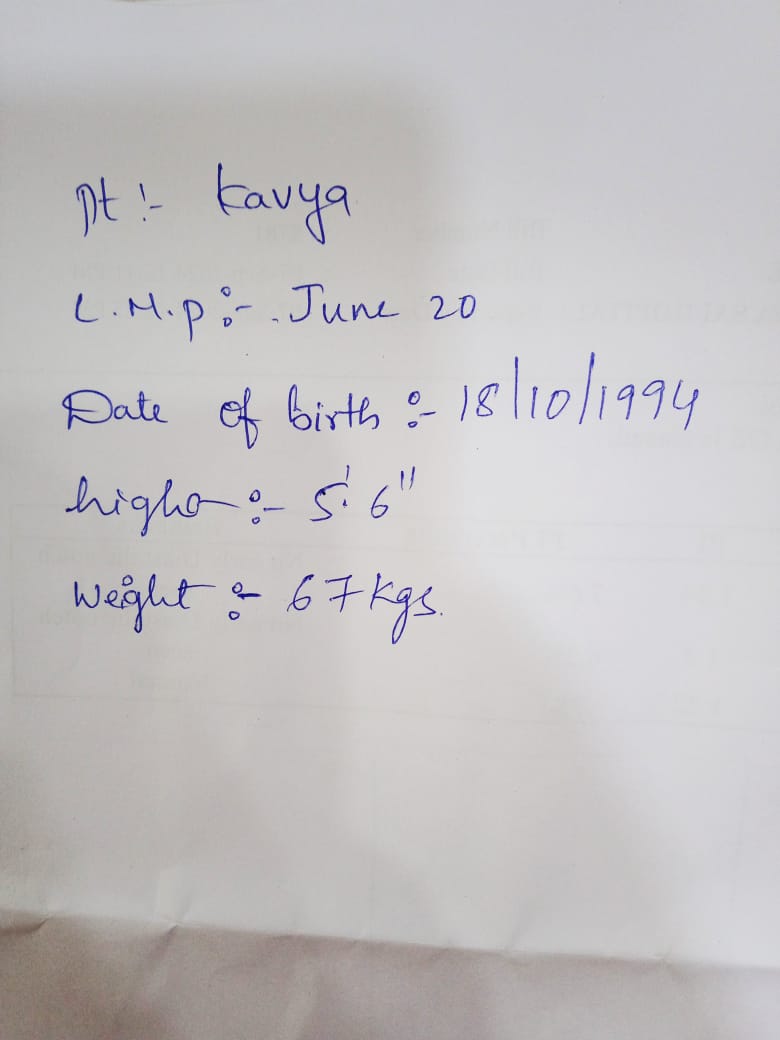 Pt :- Kavya
L.M.P :- June 20
Date of birth :- 18/10/1994
:- 5' 6"
Weight :- 67 kgs.